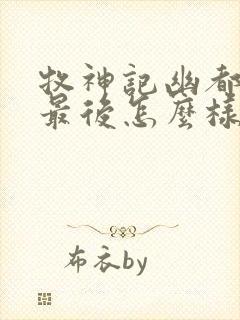 牧神記幽都
最後怎麼樣
布衣by